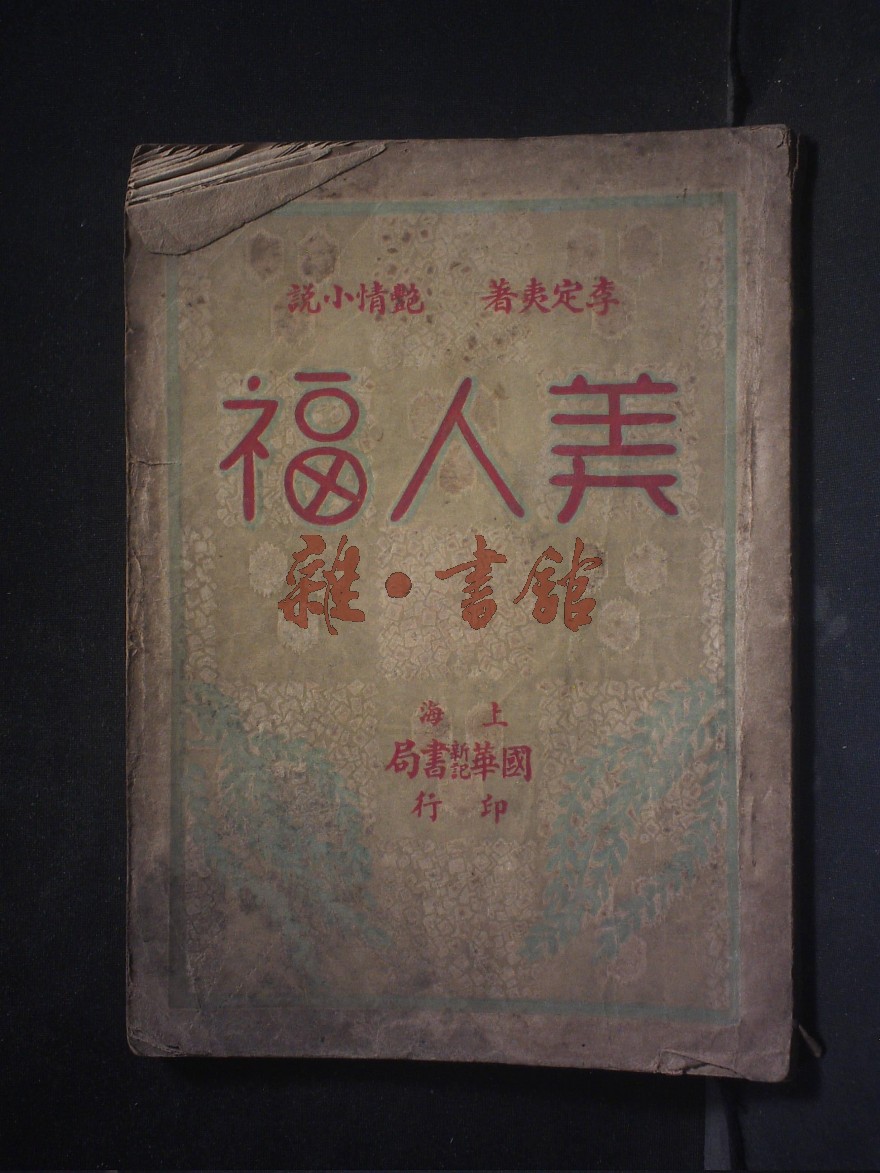 李定夷著 艷情小説
美人福
雜·書館
上海
國華新記書局
印行